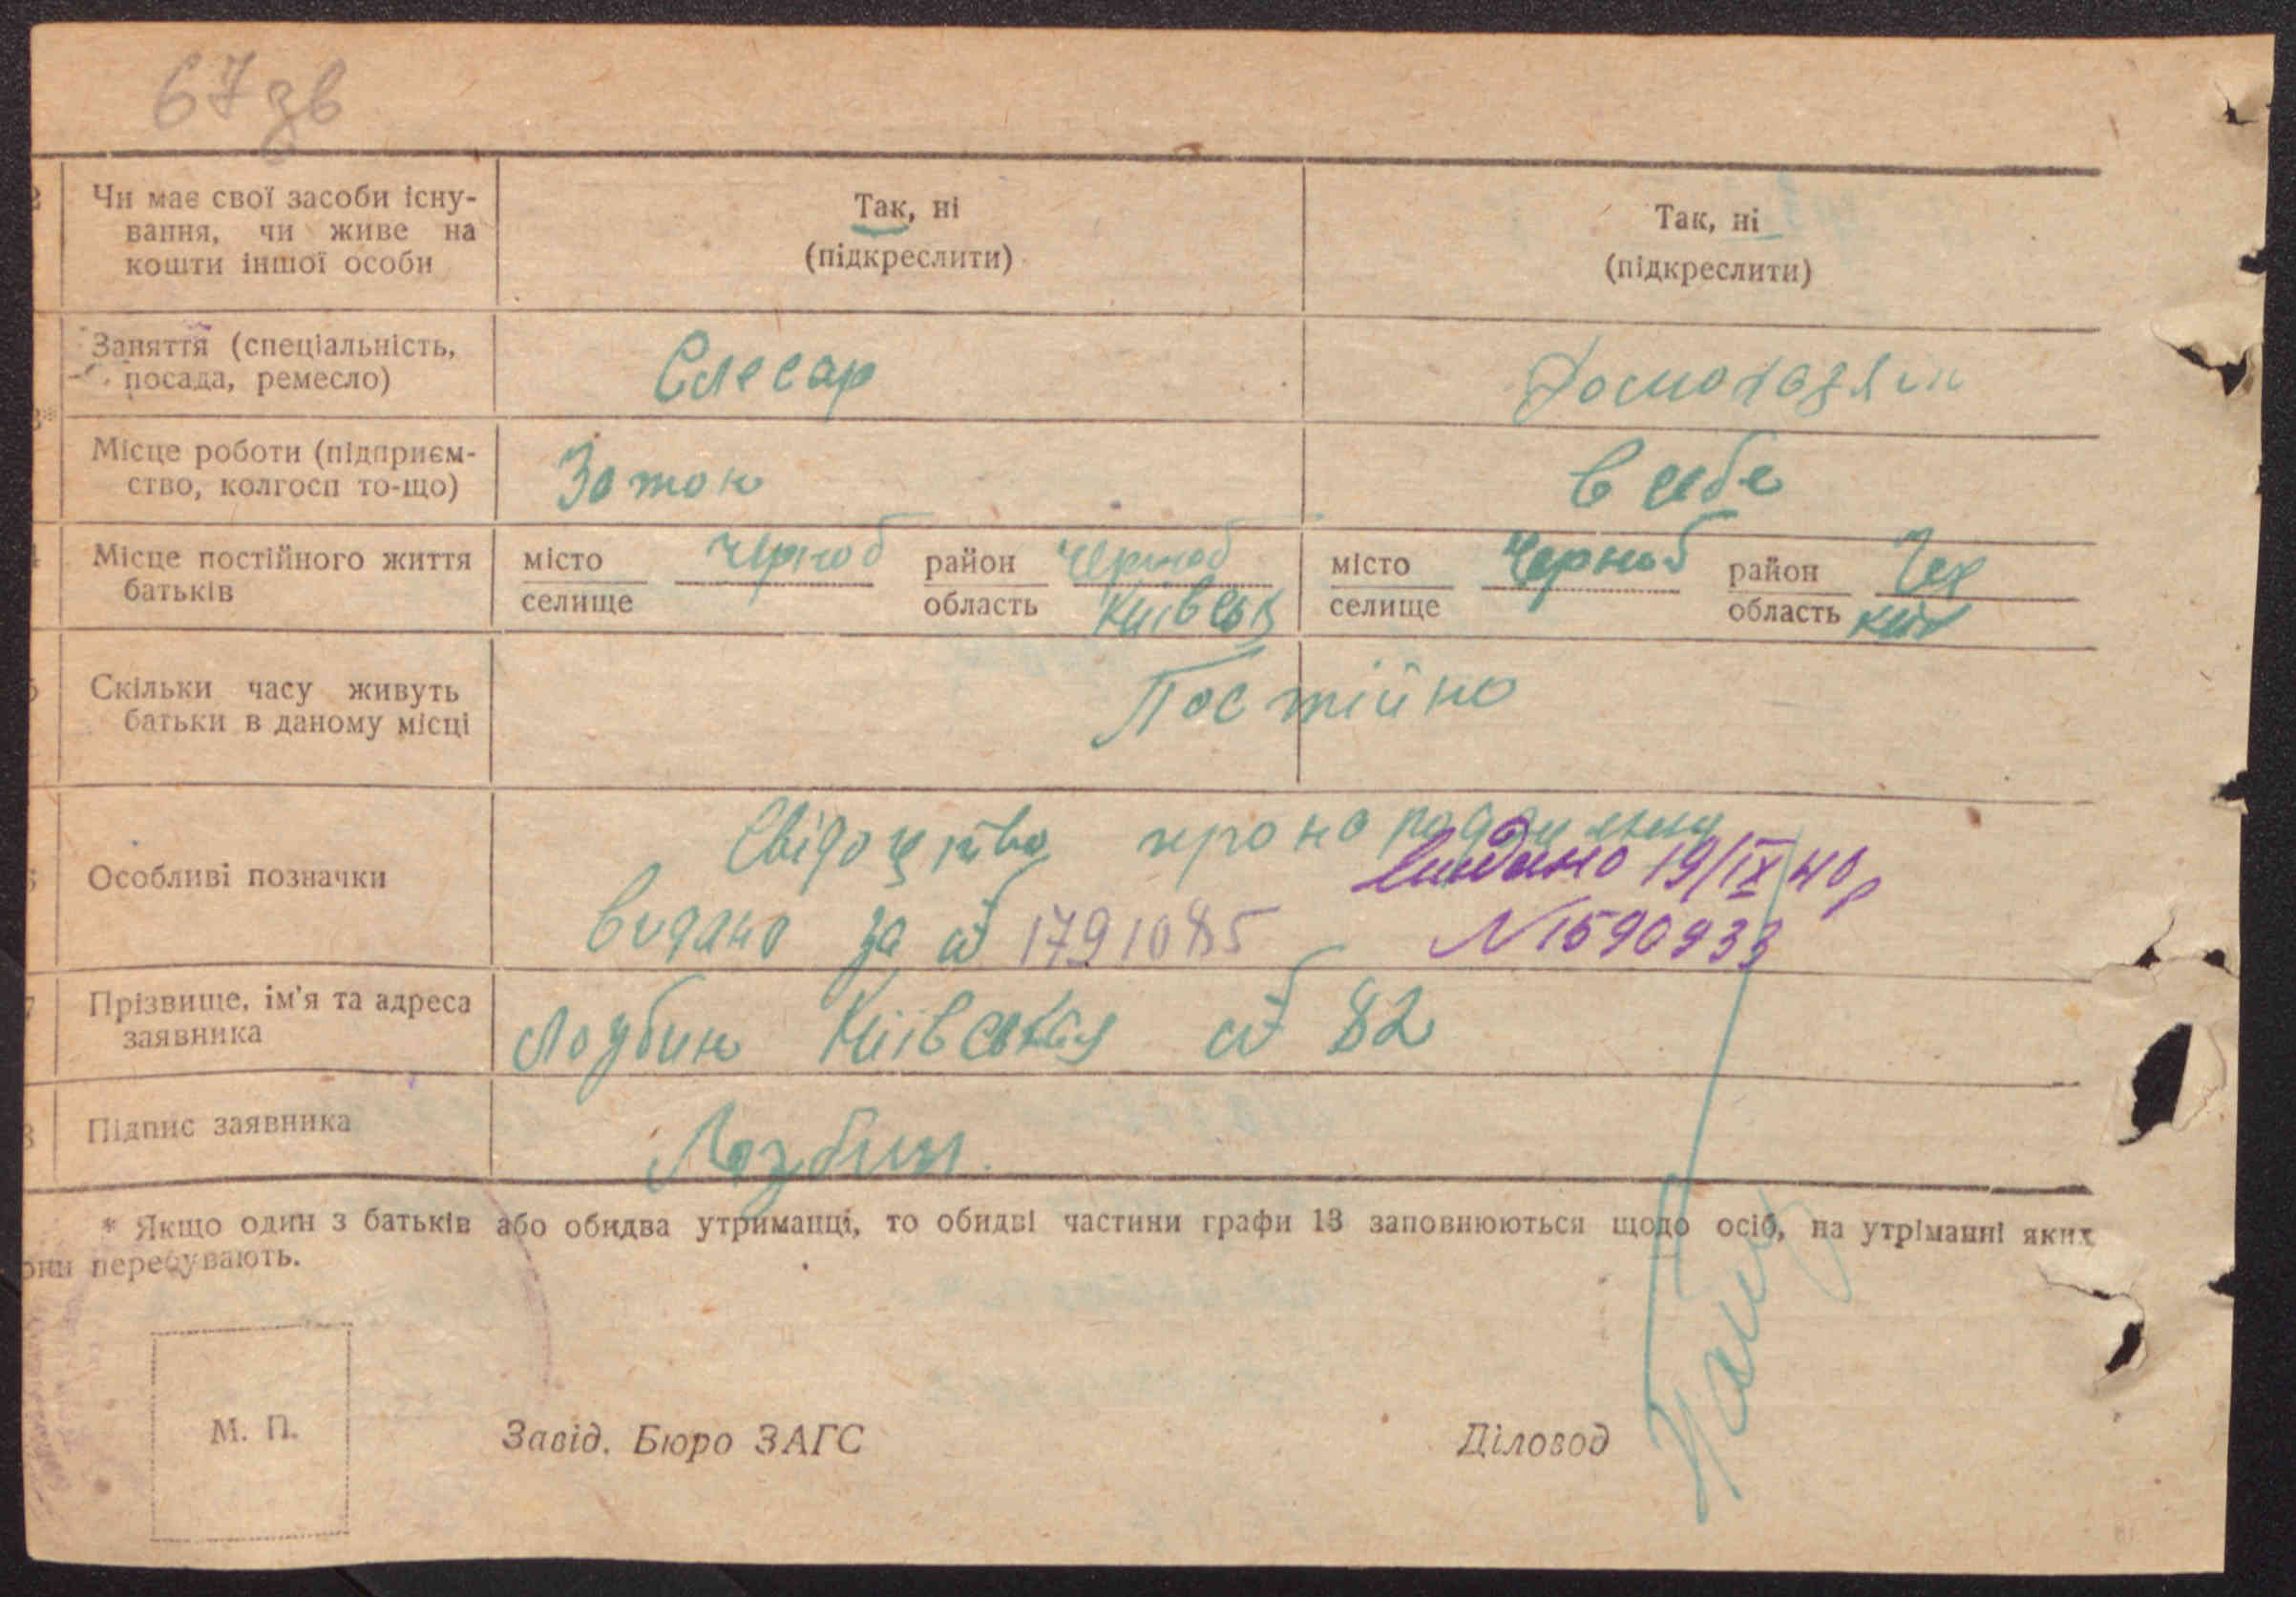 67 зв
Чи має свої засоби існу-
вання, чи живе на
кошти іншої особи
Так, ні
(підкреслити)
Так, ні
(підкреслити)
Заняття (спеціальність,
посада, ремесло)
Слесар
Домохазяін
Місце роботи (підприєм-
ство, колгосп то-що)
Затон
в себе
Місце постійного життя
батьків
місто Черноб район Черноб
селище область Київськ
місто Черноб район Чер
селище область Киів
Скільки часу живуть
батьки в даному місці
Постійно
Особливі позначки
Свідоцтво про народження
Видано 19/IX 40 р
видано за № 1791085
N 1590933
Прізвище, ім'я та адреса
заявника
Київская № 82
Підпис заявника
* Якщо один з батьків або обидва утриманці, то обидві частини графи 13 заповнюються щодо осіб, на утріманні яких
они перебувають.
М. П.
Завід. Бюро ЗАГС
Діловод